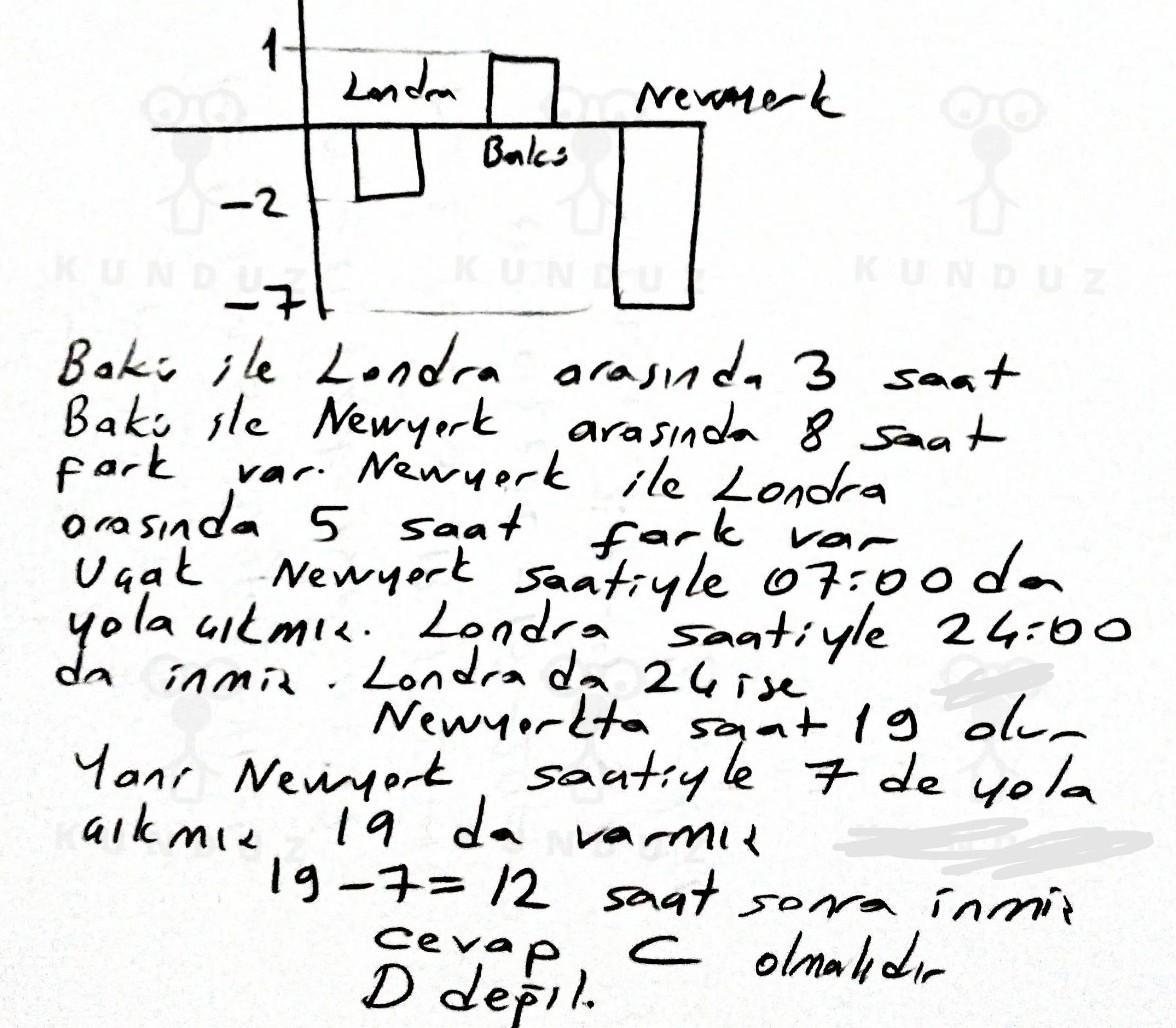 1
Londra
Newyork
Bakü
-2
KUNDUZ KUNDUZ KUNDUZ
-7
Bakü ile Londra arasında 3 saat
Bakü ile Newyork arasında 8 saat
fark var. Newyork ile Londra
arasında 5 saat fark var
Uçak Newyork saatiyle 07:00 da
yola çıkmış. Londra saatiyle 24:00
da inmiş. Londra da 24 ise
Newyorkta saat 19 olur
Yani Newyork saatiyle 7 de yola
çıkmış 19 da varmış
KUNDUZ KUNDUZ
19-7=12 saat sonra inmiş
cevap C olmalıdır
D değil.